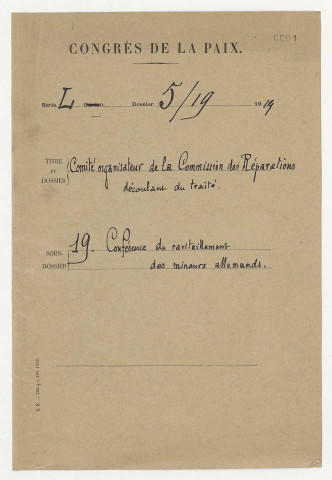 CONGRÈS DE LA PAIX.
Série L Dossier 5/19 1919
TITRE DU DOSSIER Comité organisateur de la Commission des Réparations
découlant du traité.
SOUS-DOSSIER 19. Conférence du ravitaillement
des mineurs allemands.